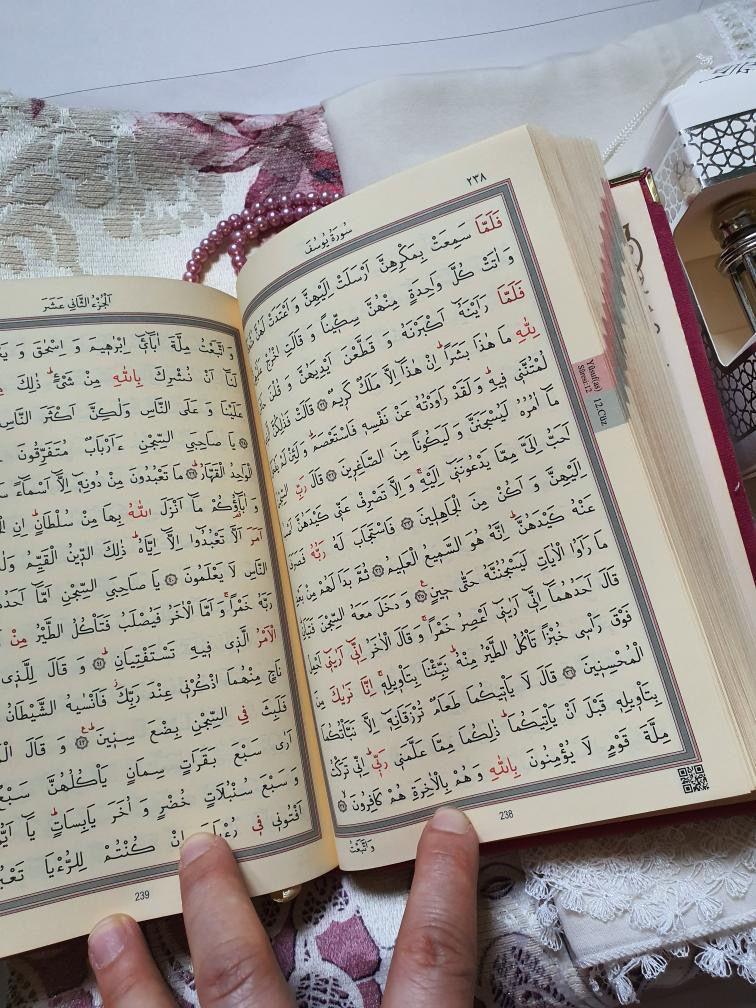 ٢٣٨
سُورَةُ يُوسُفَ
فَلَمَّا سَمِعَتْ بِمَكْرِهِنَّ اَرْسَلَتْ اِلَيْهِنَّ وَ اَعْتَدَتْ لَهُنَّ
وَ اٰتَتْ كُلَّ وَاحِدَةٍ مِنْهُنَّ سِكّٖينًا وَ قَالَتِ اخْرُجْ
فَلَمَّا رَاَيْنَهُٓ اَكْبَرْنَهُ وَ قَطَّعْنَ اَيْدِيَهُنَّ وَ قُلْنَ
لِلّٰهِ مَا هٰذَا بَشَرًاۜ اِنْ هٰذَٓا اِلَّا مَلَكٌ كَرٖيمٌ ﴿٣١﴾ قَالَتْ فَذٰلِكُنَّ
لُمْتُنَّنٖي فٖيهِۜ وَ لَقَدْ رَاوَدْتُهُ عَنْ نَفْسِهٖ فَاسْتَعْصَمَۜ وَ لَئِنْ لَمْ
مَٓا اٰمُرُهُ لَيُسْجَنَنَّ وَ لَيَكُونًا مِنَ الصَّاغِرٖينَ ﴿٣٢﴾ قَالَ رَبِّ
اَحَبُّ اِلَيَّ مِمَّا يَدْعُونَنٖٓي اِلَيْهِۚ وَ اِلَّا تَصْرِفْ عَنّٖي كَيْدَهُنَّ
اِلَيْهِنَّ وَ اَكُنْ مِنَ الْجَاهِلٖينَ ﴿٣٣﴾ فَاسْتَجَابَ لَهُ رَبُّهُ
عَنْهُ كَيْدَهُنَّۜ اِنَّهُ هُوَ السَّمٖيعُ الْعَلٖيمُ ﴿٣٤﴾ ثُمَّ بَدَا لَهُمْ مِنْ بَعْدِ
مَا رَاَوُا الْاٰيَاتِ لَيَسْجُنُنَّهُ حَتّٰى حٖينٍ ﴿٣٥﴾ وَ دَخَلَ مَعَهُ السِّجْنَ فَتَيَانِۜ
قَالَ اَحَدُهُمَٓا اِنّٖٓي اَرٰينٖٓي اَعْصِرُ خَمْرًاۚ وَ قَالَ الْاٰخَرُ اِنّٖٓي اَرٰينٖٓي اَحْمِلُ
فَوْقَ رَاْسٖي خُبْزًا تَاْكُلُ الطَّيْرُ مِنْهُۜ نَبِّئْنَا بِتَاْوٖيلِهٖۚ اِنَّا نَرٰيكَ مِنَ
الْمُحْسِنٖينَ ﴿٣٦﴾ قَالَ لَا يَاْتٖيكُمَا طَعَامٌ تُرْزَقَانِهٖٓ اِلَّا نَبَّاْتُكُمَا
بِتَاْوٖيلِهٖ قَبْلَ اَنْ يَاْتِيَكُمَاۜ ذٰلِكُمَا مِمَّا عَلَّمَنٖي رَبّٖيۜ اِنّٖي تَرَكْتُ
مِلَّةَ قَوْمٍ لَا يُؤْمِنُونَ بِاللّٰهِ وَ هُمْ بِالْاٰخِرَةِ هُمْ كَافِرُونَ ﴿٣٧﴾
وَ اتَّبَعْتُ
238
Yûsuf(as)
Sûresi:12
12.Cüz
اَلْجُزْءُ الثَّانٖي عَشَرَ
وَ اتَّبَعْتُ مِلَّةَ اٰبَٓاءٖٓي اِبْرٰهٖيمَ وَ اِسْحٰقَ
لَنَٓا اَنْ نُشْرِكَ بِاللّٰهِ مِنْ شَيْءٍۜ ذٰلِكَ
عَلَيْنَا وَ عَلَى النَّاسِ وَلٰكِنَّ اَكْثَرَ النَّاسِ
﴿٣٨﴾ يَا صَاحِبَيِ السِّجْنِ ءَاَرْبَابٌ مُتَفَرِّقُونَ
الْوَاحِدُ الْقَهَّارُۜ ﴿٣٩﴾ مَا تَعْبُدُونَ مِنْ دُونِهٖٓ اِلَّٓا اَسْمَٓاءً
وَ اٰبَٓاؤُكُمْ مَٓا اَنْزَلَ اللّٰهُ بِهَا مِنْ سُلْطَانٍۜ اِنِ
اَمَرَ اَلَّا تَعْبُدُٓوا اِلَّٓا اِيَّاهُۜ ذٰلِكَ الدّٖينُ الْقَيِّمُ
النَّاسِ لَا يَعْلَمُونَ ﴿٤٠﴾ يَا صَاحِبَيِ السِّجْنِ اَمَّٓا
رَبَّهُ خَمْرًاۚ وَ اَمَّا الْاٰخَرُ فَيُصْلَبُ فَتَاْكُلُ الطَّيْرُ مِنْ
الْاَمْرُ الَّذٖي فٖيهِ تَسْتَفْتِيَانِۜ ﴿٤١﴾ وَ قَالَ لِلَّذٖي
نَاجٍ مِنْهُمَا اذْكُرْنٖي عِنْدَ رَبِّكَۘ فَاَنْسٰيهُ الشَّيْطَانُ
فَلَبِثَ فِي السِّجْنِ بِضْعَ سِنٖينَ ﴿٤٢﴾ وَ قَالَ
اَرٰى سَبْعَ بَقَرَاتٍ سِمَانٍ يَاْكُلُهُنَّ سَبْعٌ
وَ سَبْعَ سُنْبُلَاتٍ خُضْرٍ وَ اُخَرَ يَابِسَاتٍۜ يَٓا
اَفْتُونٖي فٖي اِنْ كُنْتُمْ لِلرُّءْيَا
239